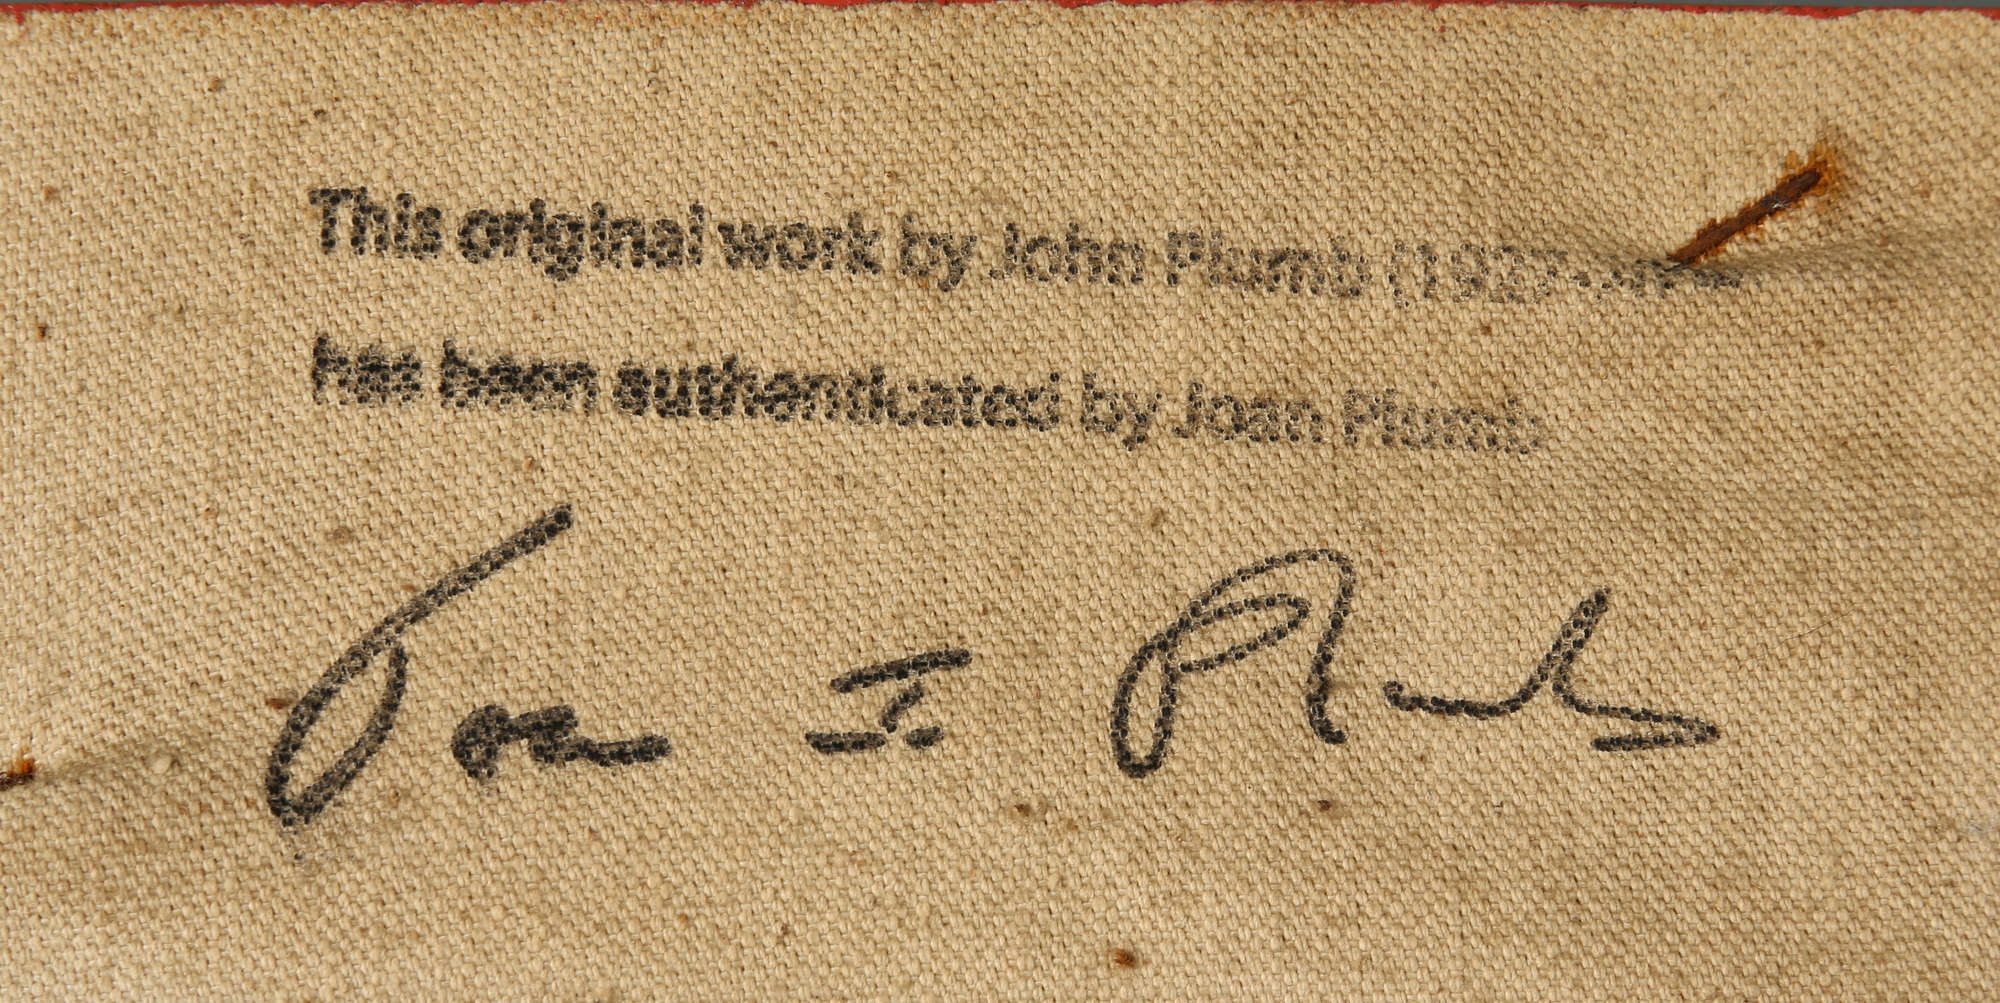 This original work by John Plumb (1927-
has been authenticated by Joan Plumb
Joan I. Plumb